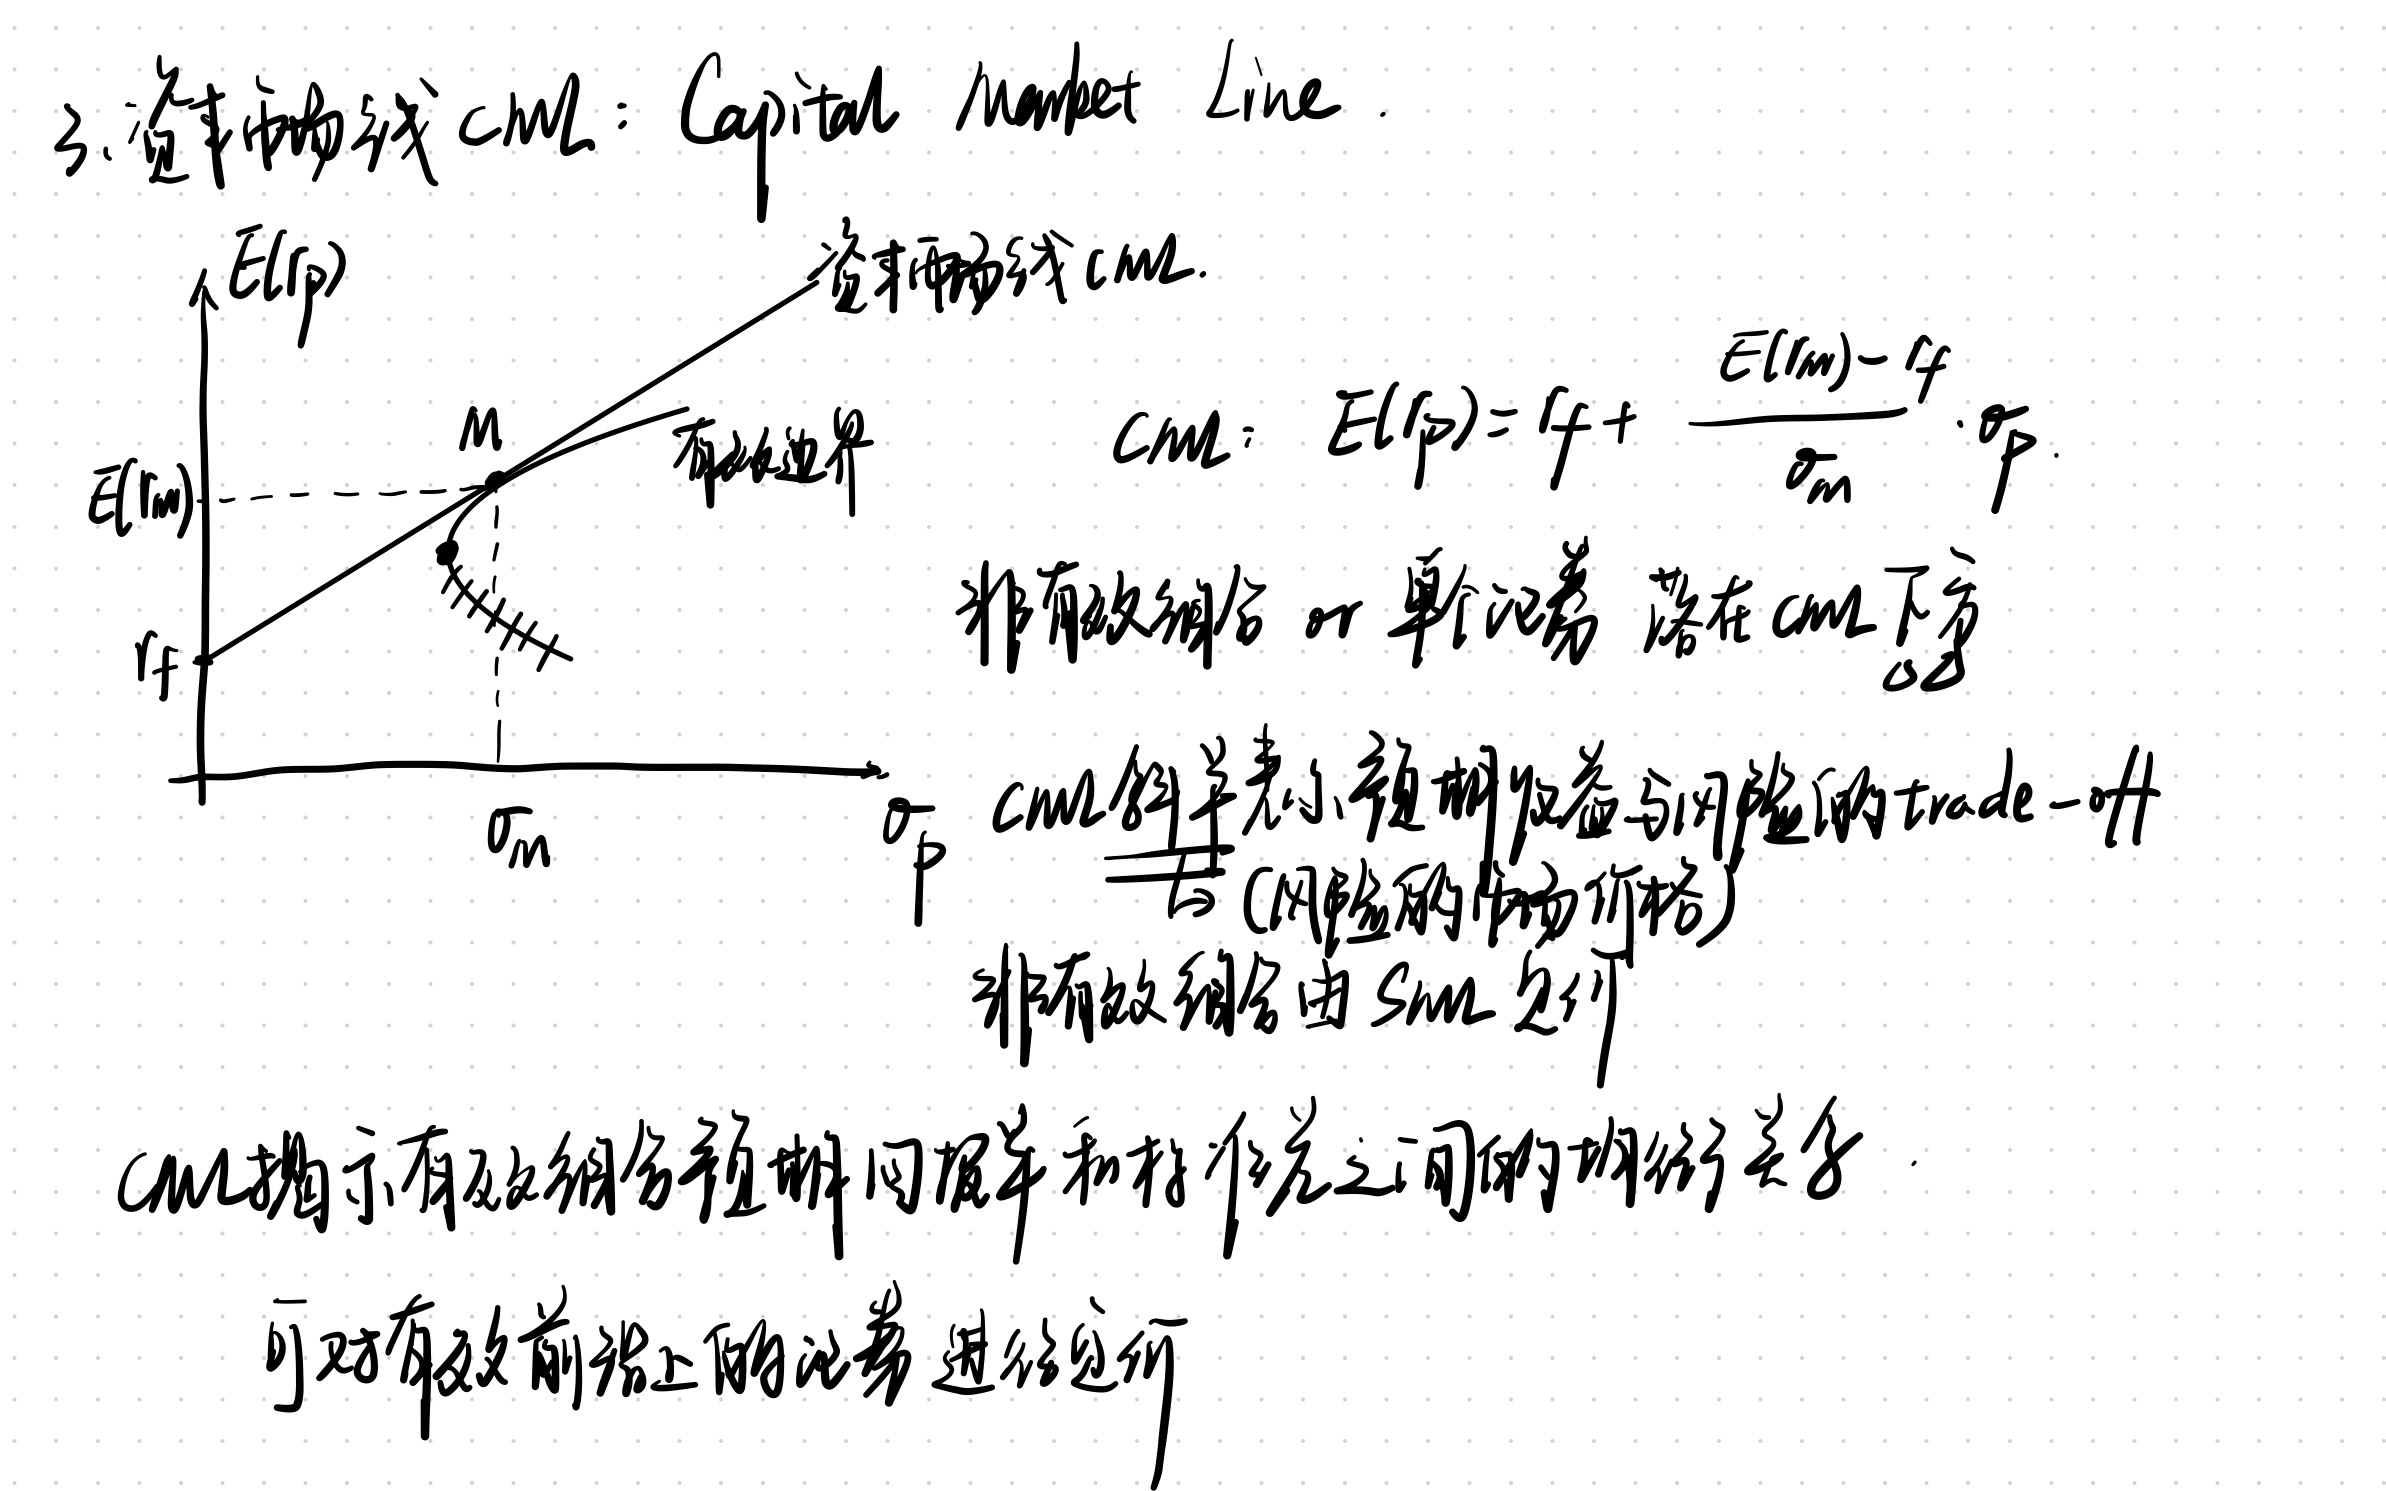 3. 资本市场线 CML: Capital Market Line.
E(rp)
资本市场线 CML.
M
有效边界
E(rm)
rf
σm
σp
CML: E(rp) = rf + (E(rm) - rf)/σm · σp.
非有效组合 or 单个证券 落在CML下方
CML斜率表示每单位收益与风险的trade-off
(风险的市场价格)
非有效组合用SML分析
CML揭示有效组合的收益率和标准差之间的均衡关系.
可对有效前沿上的证券进行定价